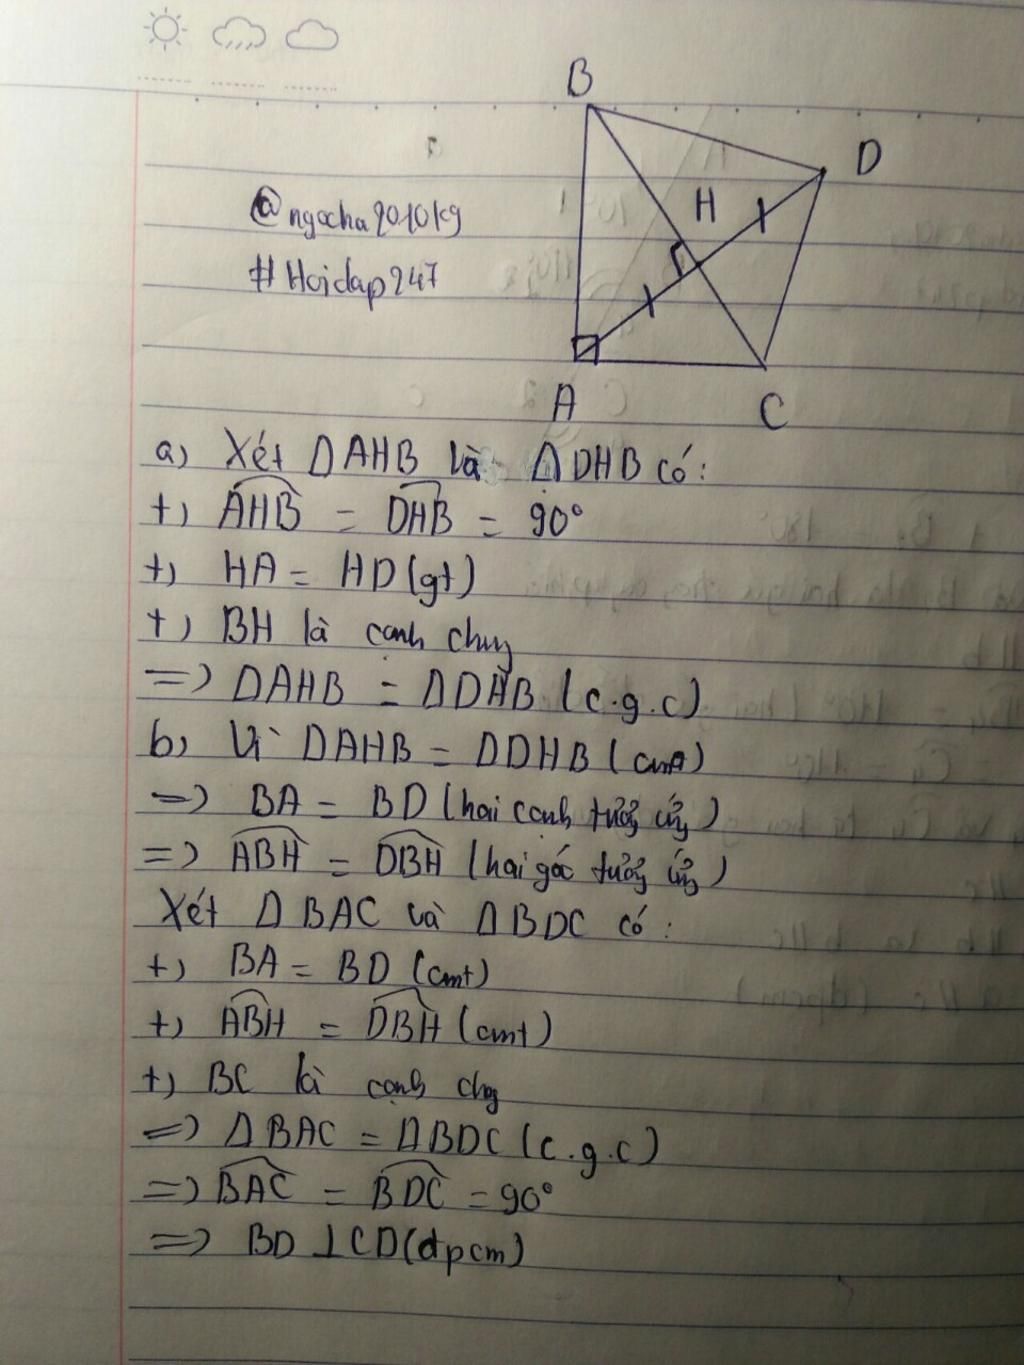 B
D
H
@ngocha2010kg
#Hoidap247
A
C
a) Xét ΔAHB và ΔDHB có:
+) AHB = DHB = 90°
+) HA = HD (gt)
+) BH là cạnh chung
=> ΔAHB = ΔDHB (c.g.c)
b) Vì ΔAHB = ΔDHB (cma)
=> BA = BD (hai cạnh tương ứng)
=> ABH = DBH (hai góc tương ứng)
Xét ΔBAC và ΔBDC có:
+) BA = BD (cmt)
+) ABH = DBH (cmt)
+) BC là cạnh chg
=> ΔBAC = ΔBDC (c.g.c)
=> BAC = BDC = 90°
=> BD ⊥ CD (đpcm)